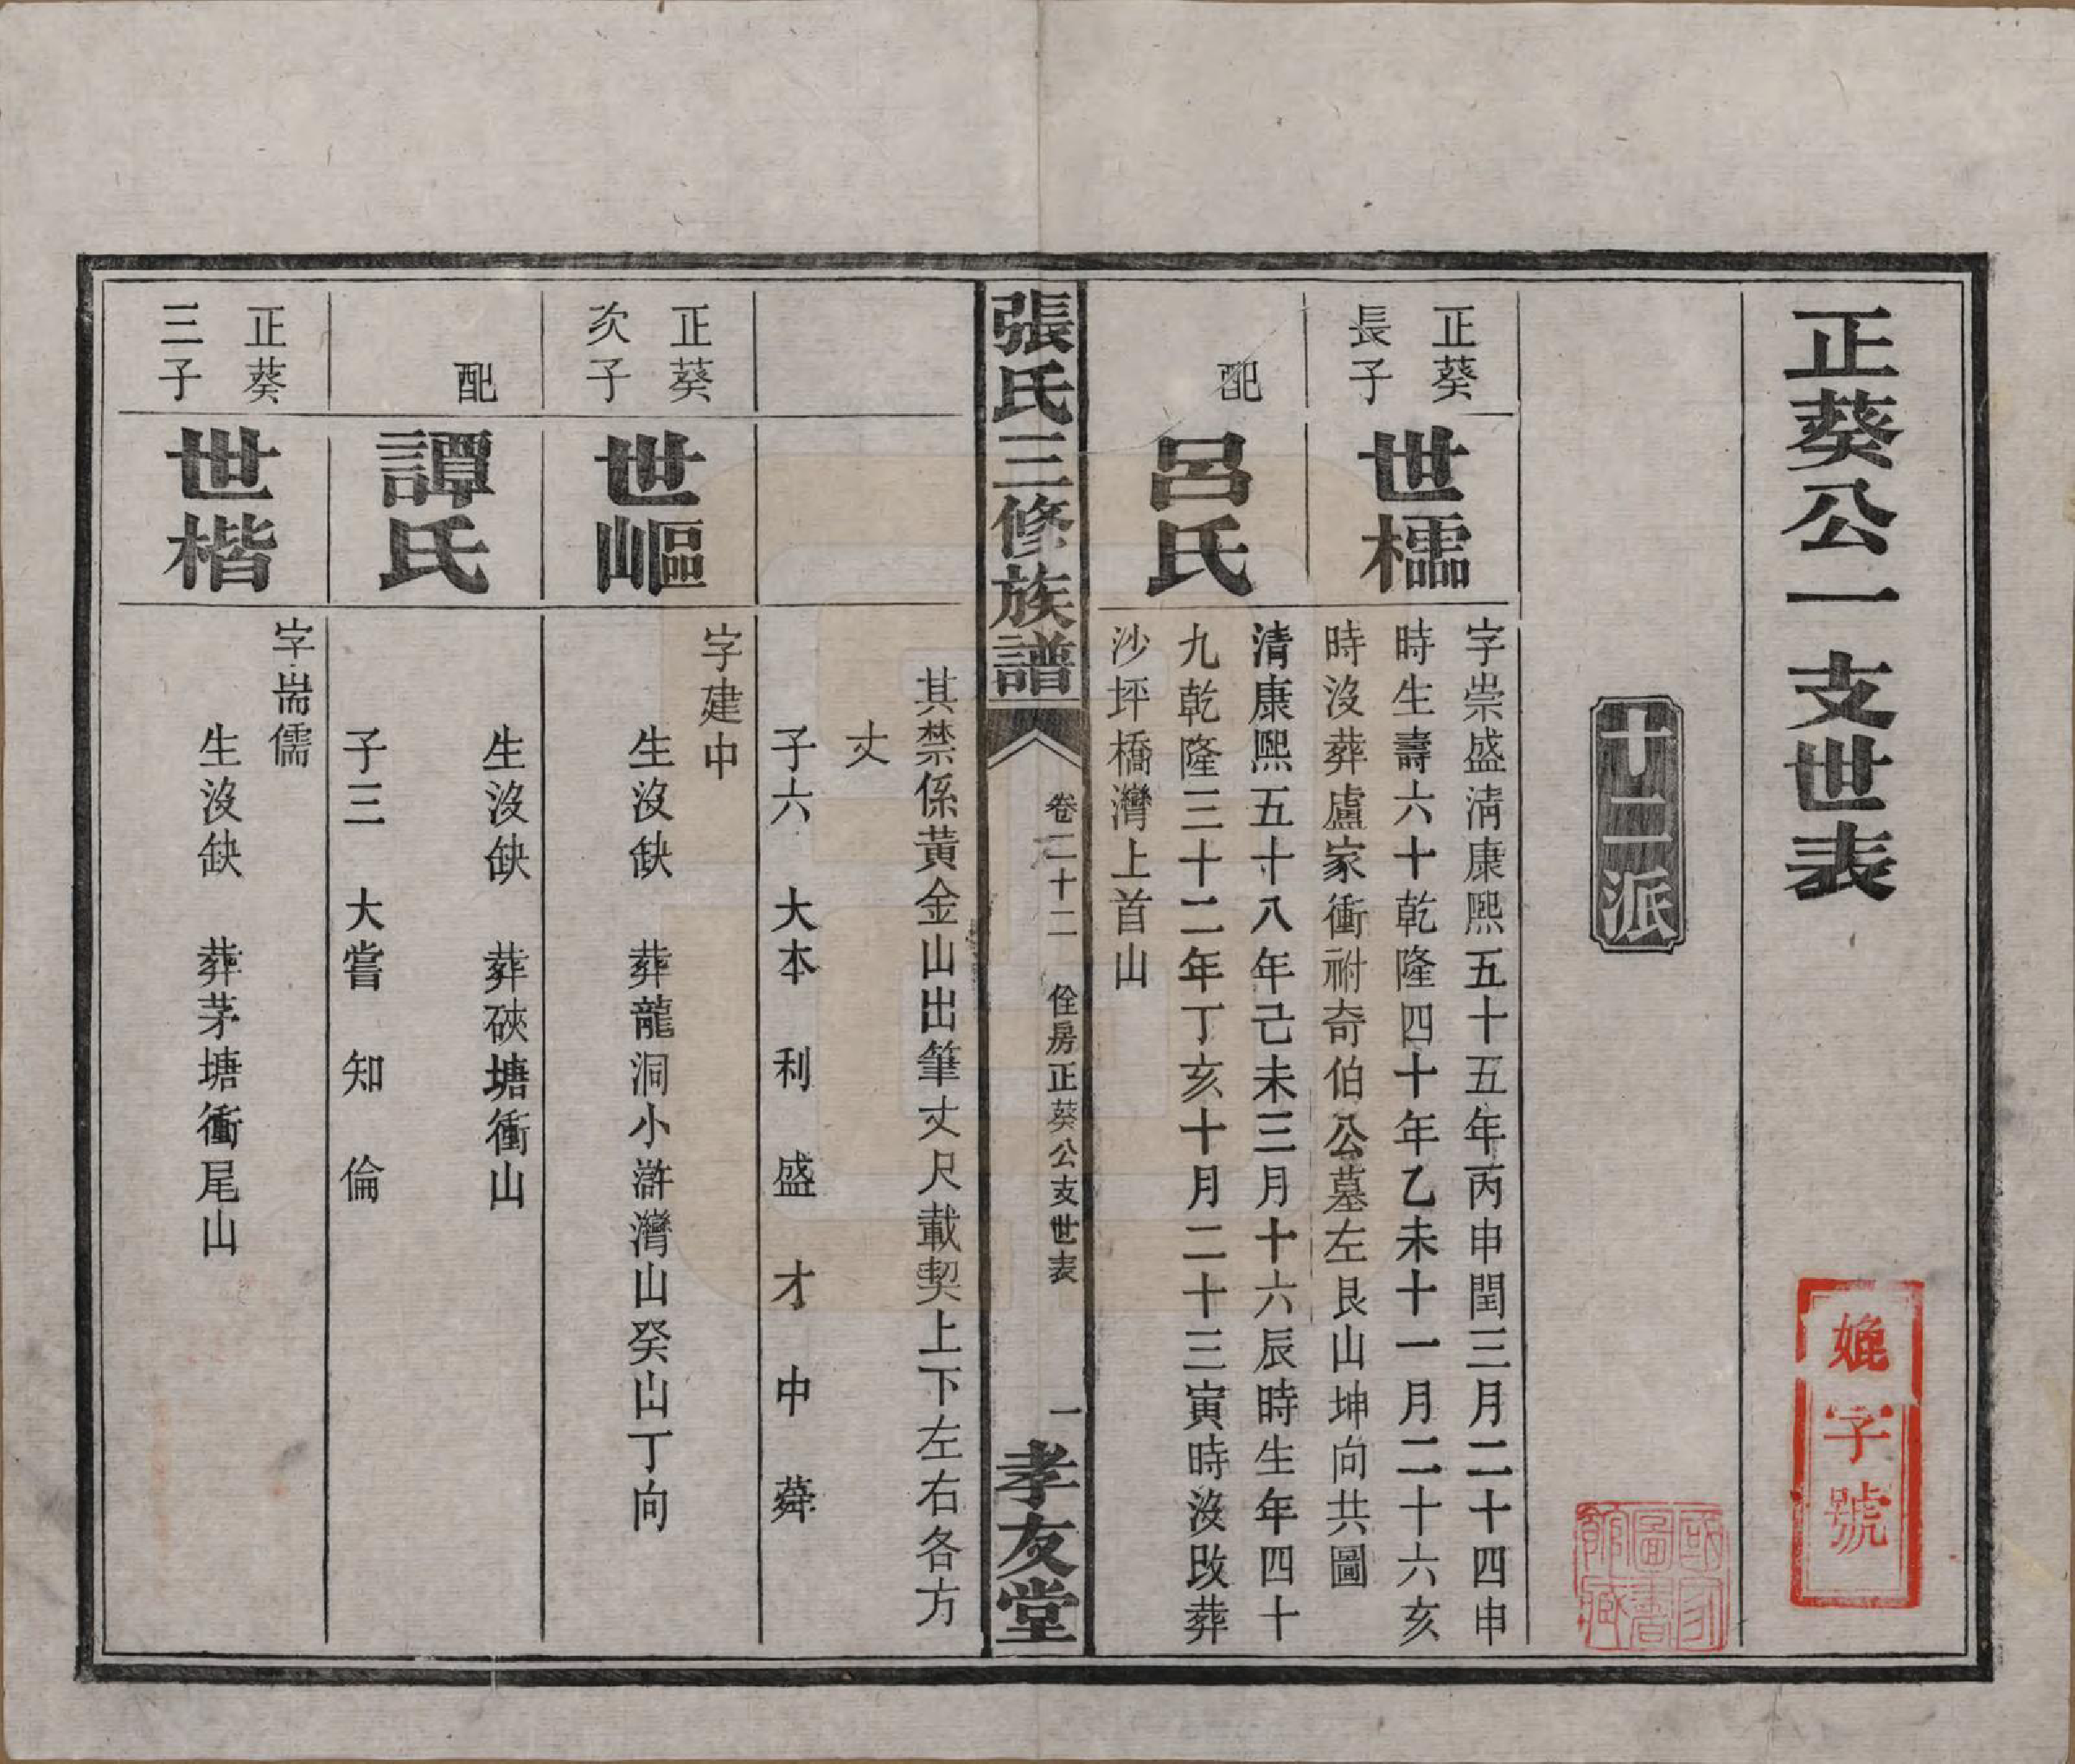 正葵公一支世表
字號
國家圖書館藏
十二派
正葵長子
世檽
字崇盛清康熙五十五年丙申閏三月二十四申
時生壽六十乾隆四十年乙未十一月二十六亥
時沒葬盧家衝祔奇伯公墓左艮山坤向共圖
配
呂氏
清康熙五十八年己未三月十六辰時生年四十
九乾隆三十二年丁亥十月二十三寅時沒改葬
沙坪橋灣上首山
張氏三修族譜
卷二十二
佺房正葵公支世表
一
孝友堂
其禁係黃金山出筆丈尺載契上下左右各方
丈
子六 大本 利 盛 才 中 蕣
正葵次子
世嶇
字建中
生沒缺 葬龍洞小滸灣山癸山丁向
配
譚氏
生沒缺 葬硤塘衝山
子三 大嘗 知 倫
正葵三子
世楷
字耑儒
生沒缺 葬茅塘衝尾山